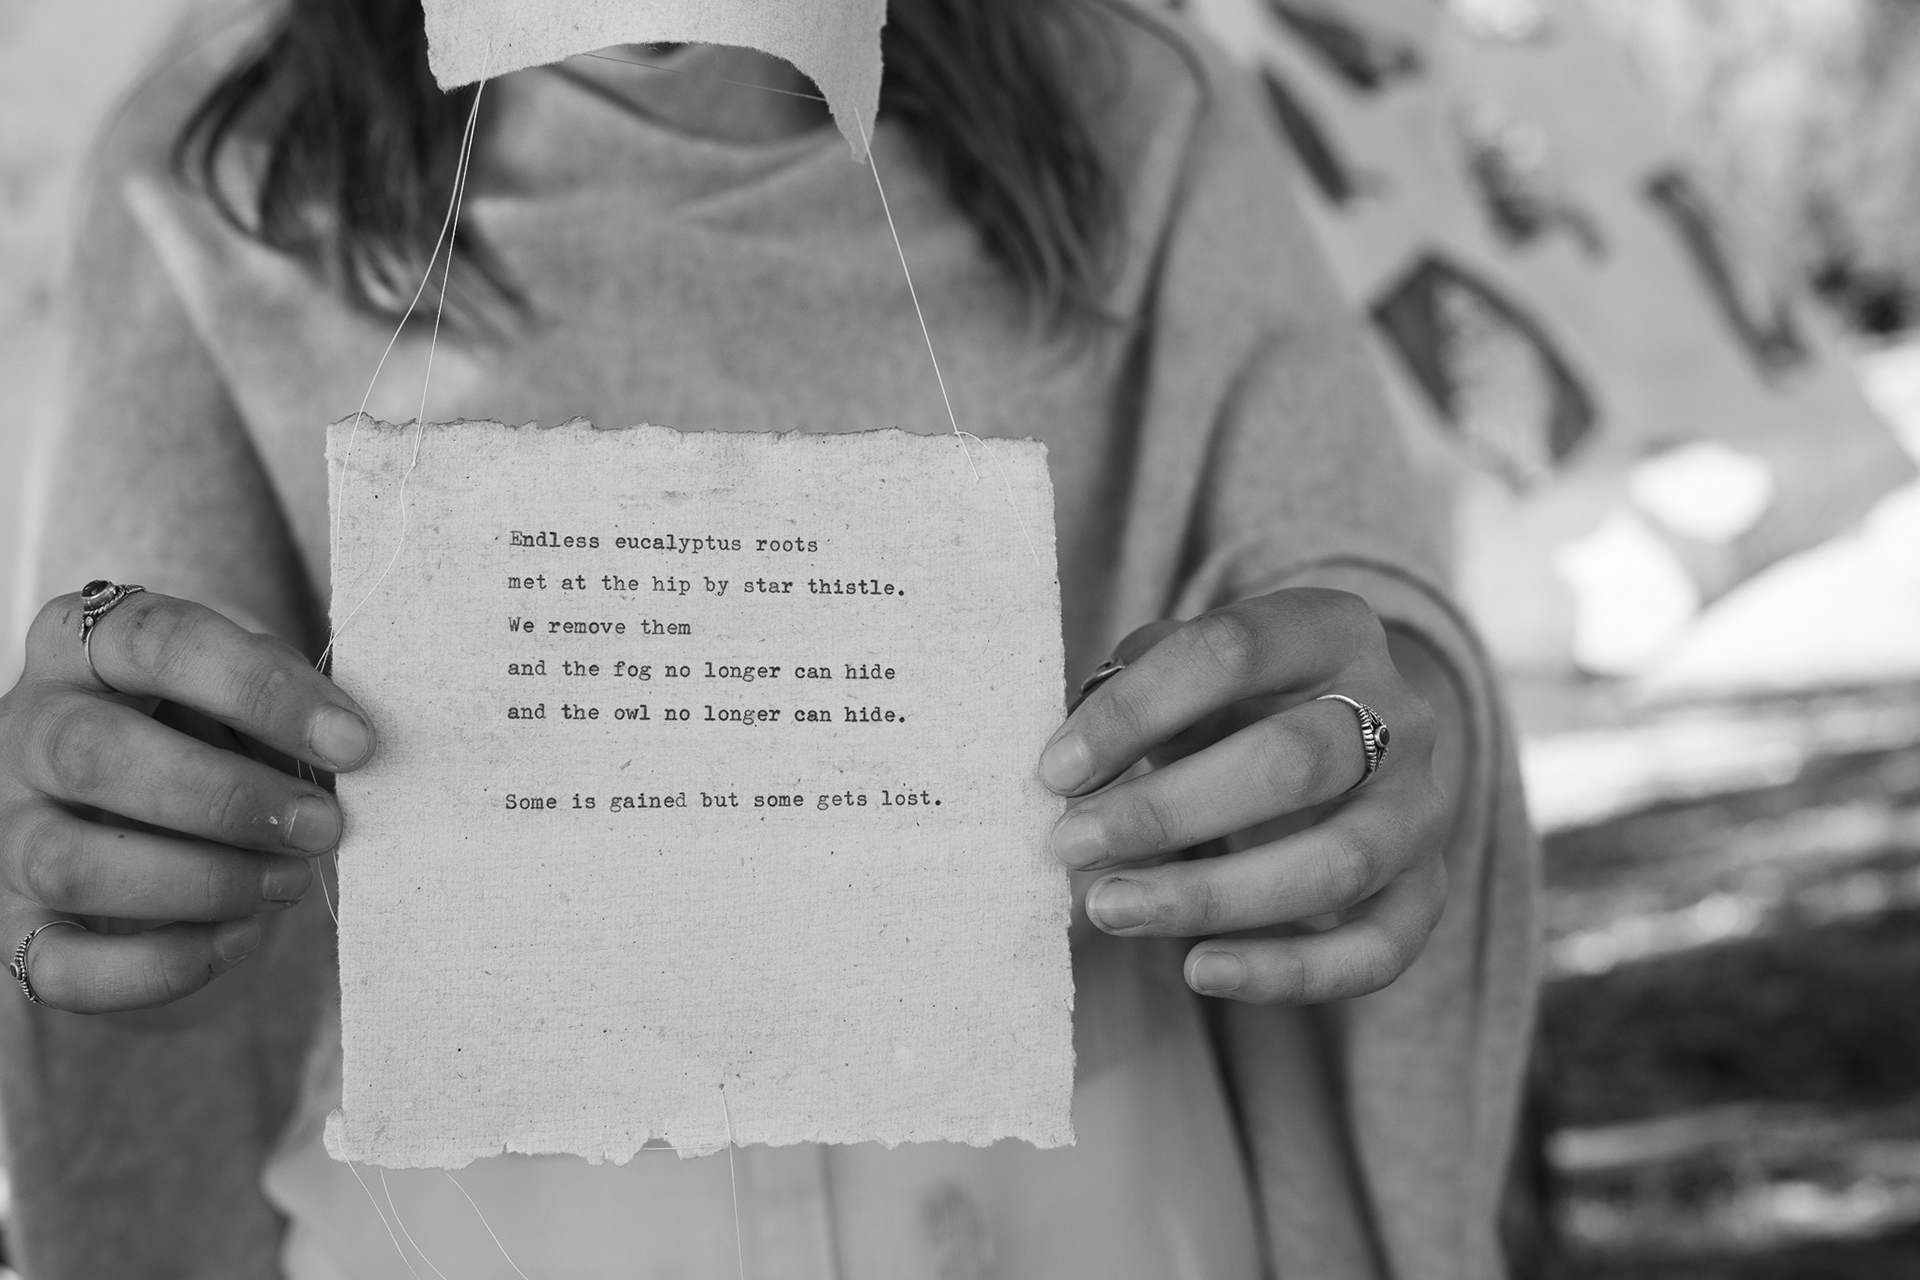 Endless eucalyptus roots
met at the hip by star thistle.
We remove them
and the fog no longer can hide
and the owl no longer can hide.
Some is gained but some gets lost.